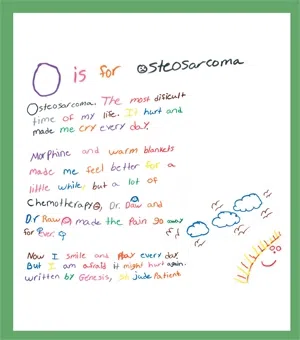 O is for osteosarcoma
Osteosarcoma. The most difficult
time of my life. It hurt and
made me cry every day.
Morphine and warm blankets
made me feel better for a
little while but a lot of
Chemotherapy, Dr. Daw and
Dr Raw made the Pain go away
for Ever.
Now I smile and Play every day
But I am afraid it might hurt again.
written by Génesis, st jude Patient